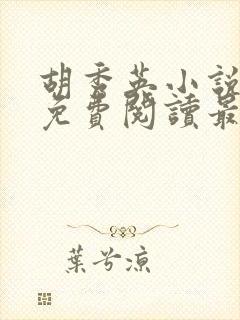 胡秀英小說
免費閱讀最
葉兮涼